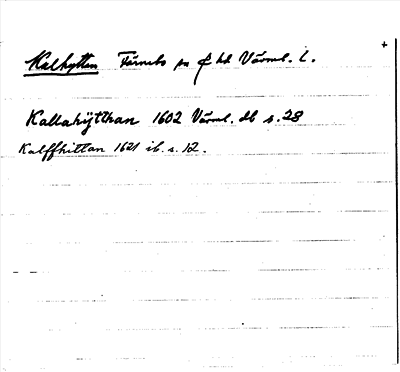 Kalhyttan Färnebo sn f hd Värml. l.
+
Kallahÿtthan 1602 Värml. db s. 28
Kalffhittan 1621 ib. s. 12.